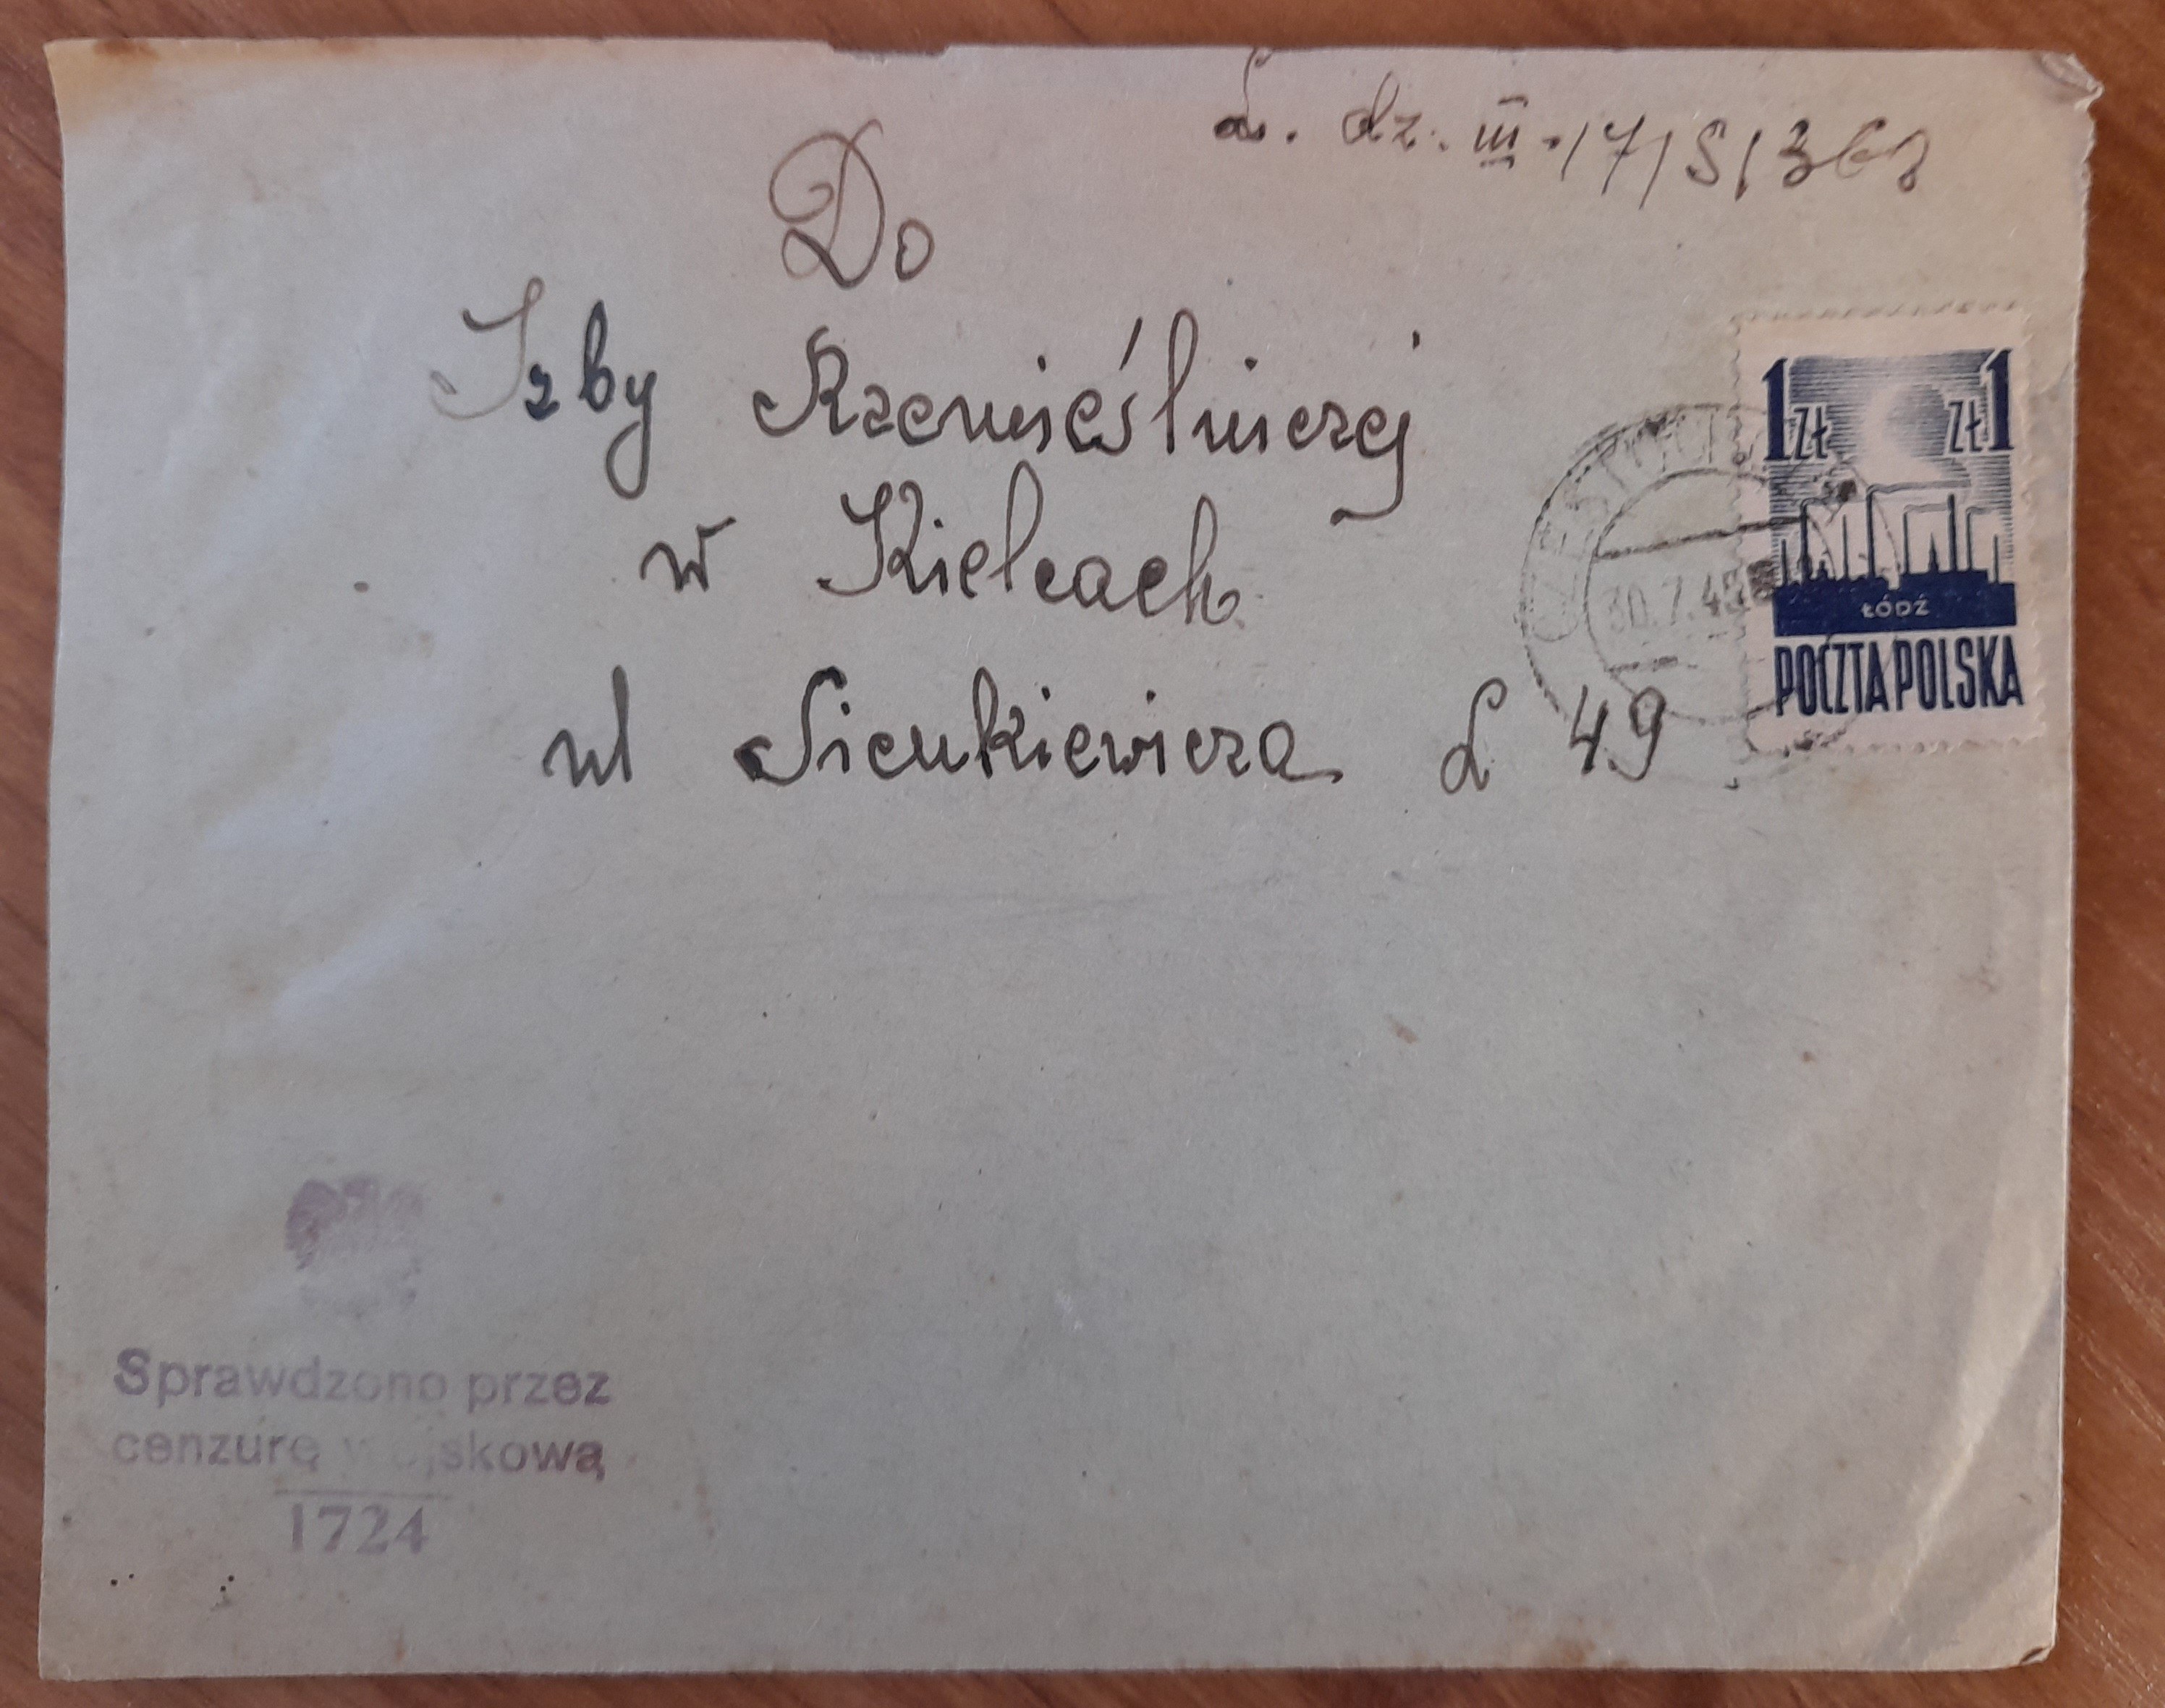 L. dz. III-/7/S/368
Do
Izby Rzemieślniczej
w Kielcach
ul Sienkiewicza L 49
1 ZŁ ZŁ 1
ŁÓDŹ
POCZTA POLSKA
30.7.45
Sprawdzono przez
cenzurę wojskową
1724